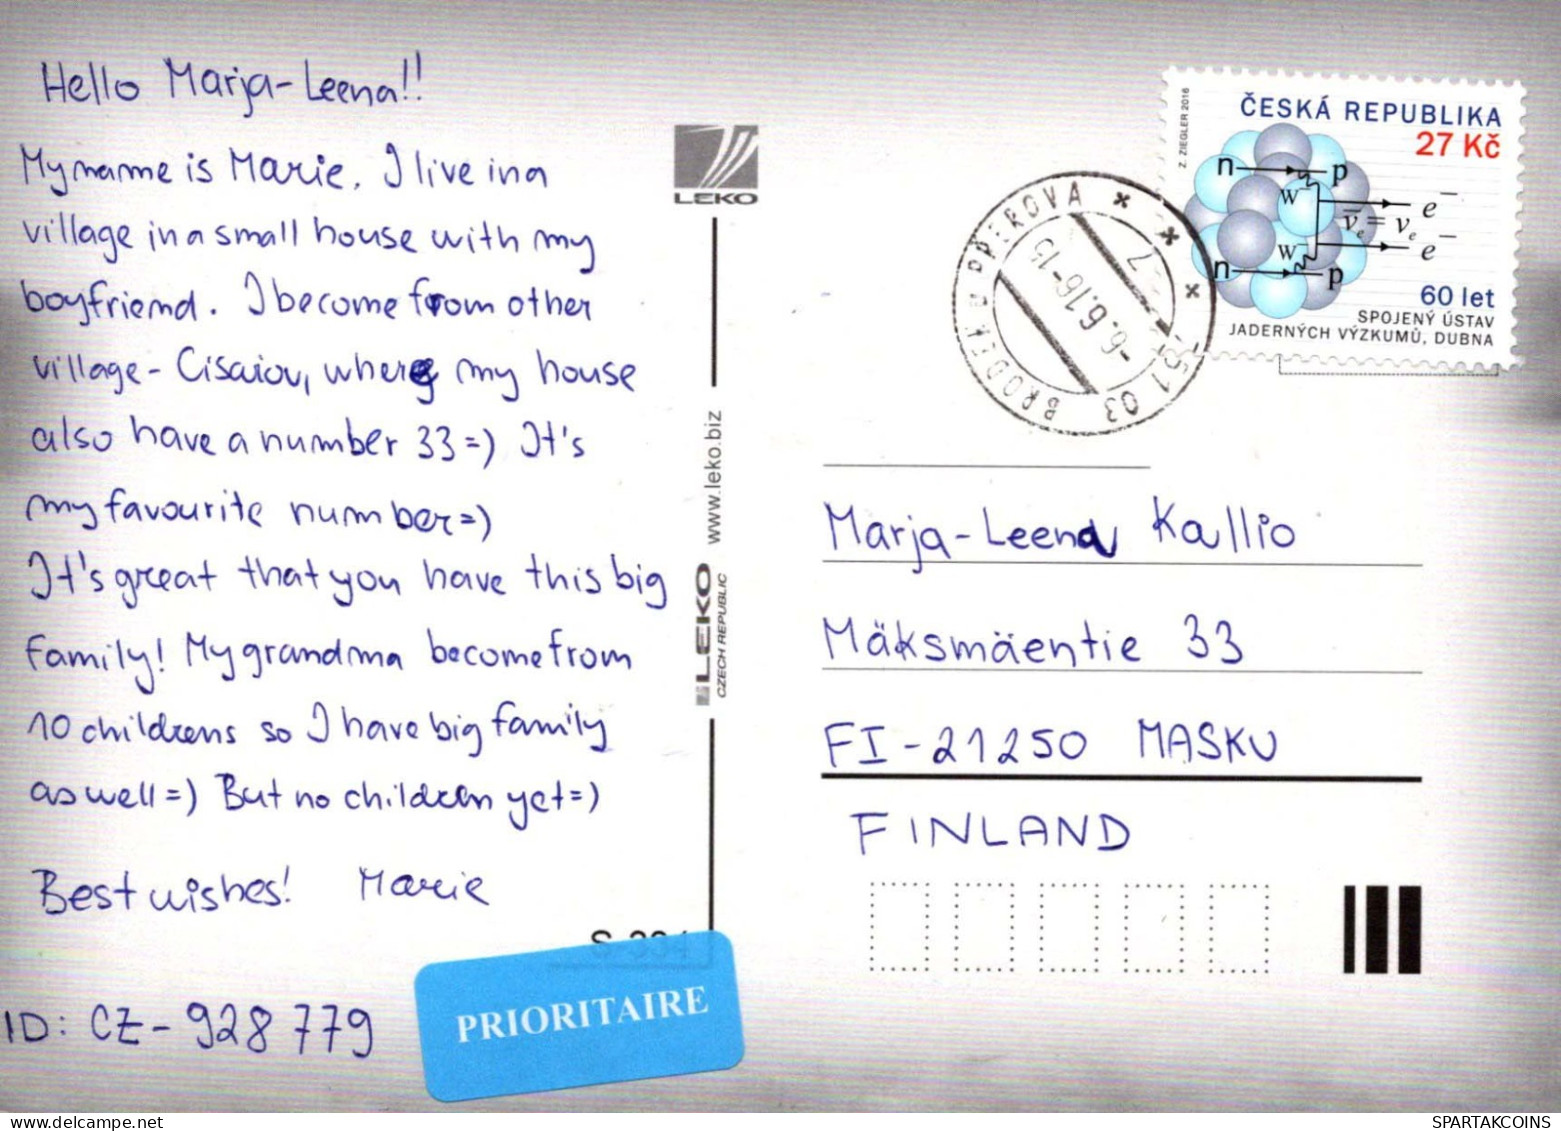 Hello Marja-Leena!!
My name is Marie. I live in a
village in a small house with my
boyfriend. I become from other
village - Cisařov, where my house
also have a number 33=) It's
my favourite number=)
It's great that you have this big
family! My grandma become from
10 childrens so I have big family
as well=) But no children yet=)
Best wishes! Marie
ID: CZ-928 779
PRIORITAIRE
LEKO
www.leko.biz
LEKO
CZECH REPUBLIC
Z. ZIEGLER 2016
ČESKÁ REPUBLIKA
27 Kč
n p
W⁻ e⁻
ν̄ₑ = νₑ
W⁻ e⁻
n p
60 let
SPOJENÝ ÚSTAV
JADERNÝCH VÝZKUMŮ, DUBNA
-6.6.16-15
551 03
Marja-Leena Kallio
Mäksmäentie 33
FI-21250 MASKU
FINLAND
SPARTAKCOINS